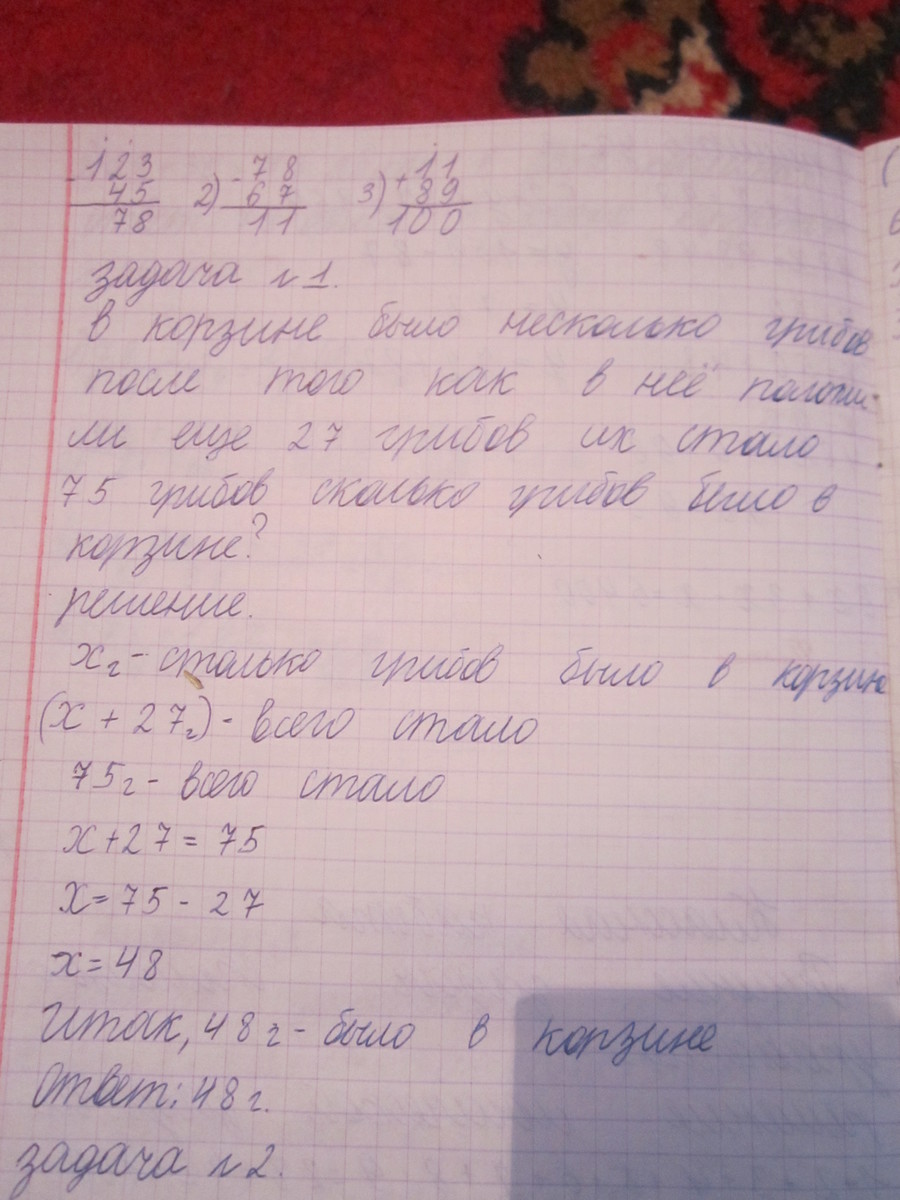 - 123 2) - 78 3) + 11
45 67 89
78 11 100
задача №1.
в корзине было несколько грибов
после того как в неё положи-
ли еще 27 грибов их стало
75 грибов сколько грибов было в
корзине?
решение.
х г - столько грибов было в корзине
(х + 27г) - всего стало
75г - всего стало
х + 27 = 75
х = 75 - 27
х = 48
Итак, 48 г - было в корзине
Ответ: 48 г.
задача №2.